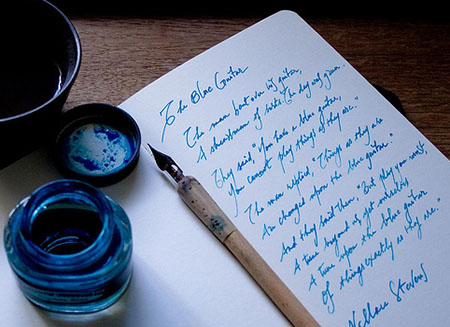 The Blue Guitar
The man bent over his guitar,
A shearsman of sorts. The day was green.
They said "You have a blue guitar,
You cannot play things as they are."
The man replied, "Things as they are
Are changed upon the blue guitar."
And they said then, "But play you must,
A tune beyond us yet ourselves
A tune upon the blue guitar
Of things exactly as they are."
Wallace Stevens